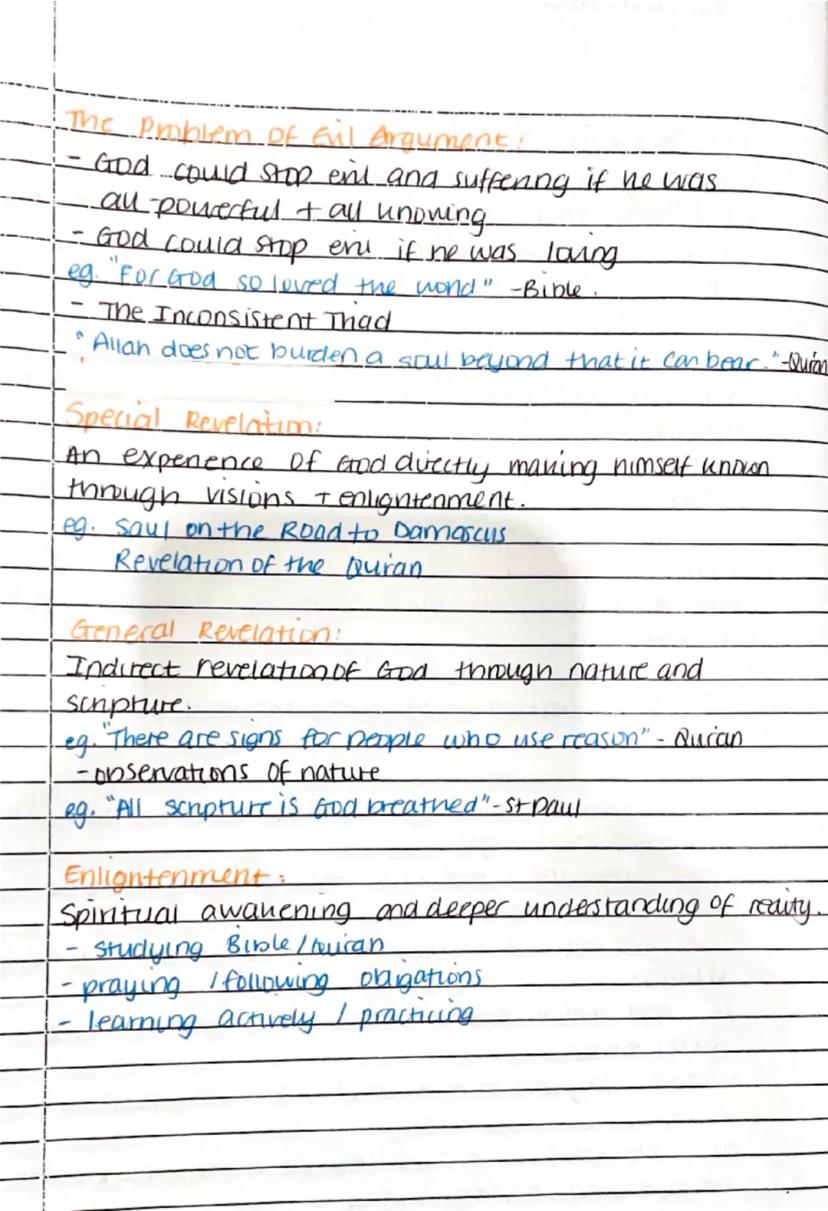 The Problem of Evil Argument:
- God could stop evil and suffering if he was
all-powerful + all knowing
- God could stop evil if he was loving
eg. "For God so loved the world" - Bible.
- The Inconsistent Triad
- "Allah does not burden a soul beyond that it can bear." - Quran
Special Revelation:
An experience of God directly making himself known
through visions + enlightenment.
eg. Saul on the Road to Damascus
Revelation of the Quran
General Revelation:
Indirect revelation of God through nature and
scripture.
eg. "There are signs for people who use reason" - Quran
- observations of nature
eg. "All scripture is God breathed" - St Paul
Enlightenment:
Spiritual awakening and deeper understanding of reality.
- studying Bible/Quran
- praying / following obligations
- learning actively / practicing